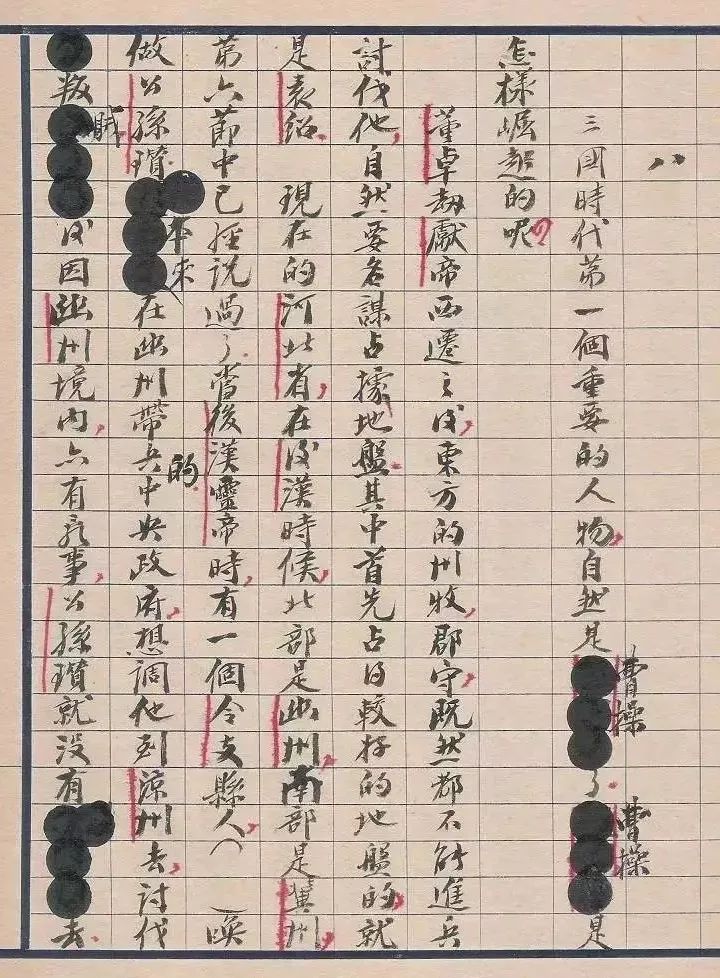 八
三國時代第一個重要的人物，自然是曹操了．曹操是
怎樣崛起的呢？
董卓劫獻帝西遷之後，東方的州牧，郡守，既然都不能進兵
討伐他，自然要各謀占據地盤．其中首先占得較好的地盤的，就
是袁紹．現在的河北省，在後漢時候，北部是幽州，南部是冀州，
第六節中已經說過了．當後漢靈帝時，有一個令支縣人，（）喚
做公孫瓚的本來在幽州帶兵．中央政府，想調他到涼州去，討伐
叛賊後因幽州境內，亦有亂事，公孫瓚就沒有去．